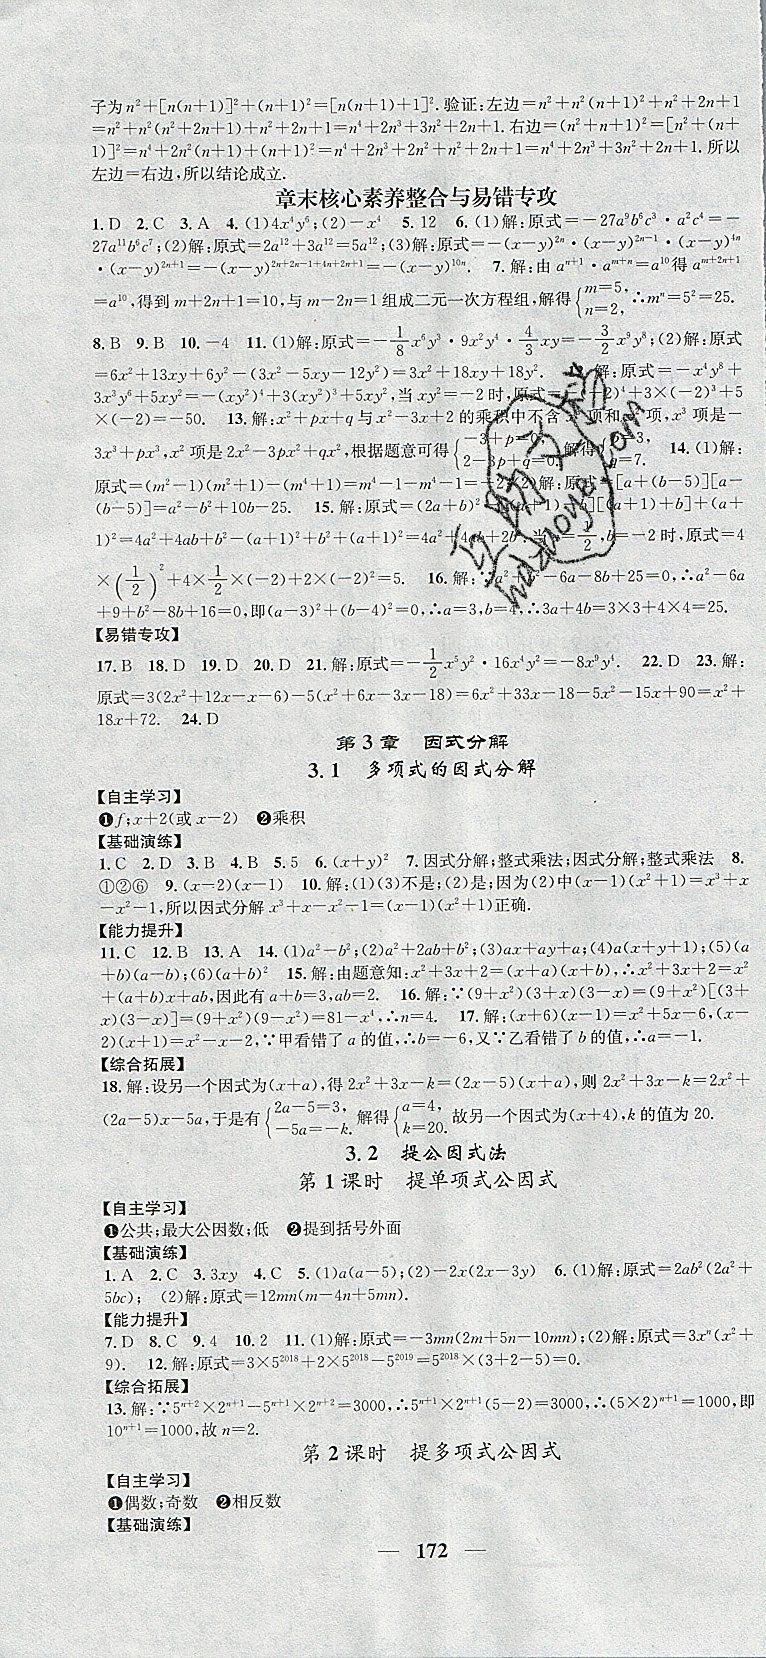 子为n²+[n(n+1)]²+(n+1)²=[n(n+1)+1]².验证:左边=n²+n²(n+1)²+n²+2n+1
=n²+n²(n²+2n+1)+n²+2n+1=n⁴+2n³+3n²+2n+1.右边=(n²+n+1)²=[n²+(n+
1)]²=n⁴+2n²(n+1)+(n+1)²=n⁴+2n³+2n²+n²+2n+1=n⁴+2n³+3n²+2n+1.所以
左边=右边,所以结论成立.
章末核心素养整合与易错专攻
1.D 2.C 3.A 4.(1)4x⁴y⁶;(2)-x⁴ 5.12 6.(1)解:原式=-27a⁹b⁶c³·a²c⁴=-
27a¹¹b⁶c⁷;(2)解:原式=2a¹²+3a¹²=5a¹²;(3)解:原式=-(x-y)²ⁿ·(x-y)²ⁿ⁻¹·(x-y)⁴ⁿ
·(x-y)²ⁿ⁺¹=-(x-y)²ⁿ⁺²ⁿ⁻¹⁺⁴ⁿ⁺²ⁿ⁺¹=-(x-y)¹⁰ⁿ. 7.解:由aⁿ⁺¹·aᵐ⁺ⁿ=a¹⁰得aᵐ⁺²ⁿ⁺¹
=a¹⁰,得到m+2n+1=10,与m-2n=1组成二元一次方程组,解得{m=5, n=2, ∴mⁿ=5²=25.
8.B 9.B 10.-4 11.(1)解:原式=-1/8x⁶y³·9x²y⁴·4/3xy=-3/2x⁹y⁸;(2)解:原式
=6x²+13xy+6y²-(3x²-5xy-12y²)=3x²+18xy+18y². 解:原式=-x⁴y⁸+
3x³y⁶+5xy²=-(xy²)⁴+3(xy²)³+5xy²,当xy²=-2时,原式=-(-2)⁴+3×(-2)³+5
×(-2)=-50. 13.解:x²+px+q与x²-3x+2的乘积中不含 项和 项,x³项是-
3x³+px³,x²项是2x²-3px²+qx²,根据题意可得{-3+p=0, 2-3p+q=0. 解得{p=3, q=7. 14.(1)解:
原式=(m²-1)(m²+1)-(m⁴+1)=m⁴-1-m⁴-1=-2;(2)解:原式=[a+(b-5)][a-
(b-5)]=a²-b²+10b-25. 15.解:原式=(2a+b)²-[(a+1)-b][(a+1)+b]+(a+
1)²=4a²+4ab+b²-(a+1)²+b²+(a+1)²=4a²+4ab+2b².当a=1/2,b=-2时,原式=4
×(1/2)²+4×1/2×(-2)+2×(-2)²=5. 16.解:∵a²+b²-6a-8b+25=0,∴a²-6a
+9+b²-8b+16=0,即(a-3)²+(b-4)²=0,∴a=3,b=4,∴3a+4b=3×3+4×4=25.
【易错专攻】
17.B 18.D 19.D 20.D 21.解:原式=-1/2x⁵y²·16x⁴y²=-8x⁹y⁴. 22.D 23.解:
原式=3(2x²+12x-x-6)-5(6x-x²+3x-18)=6x²+33x-18-5x²-15x+90=x²+
18x+72. 24.D
第3章 因式分解
3.1 多项式的因式分解
【自主学习】
❶f;x+2(或x-2) ❷乘积
【基础演练】
1.C 2.D 3.B 4.B 5.5 6.(x+y)² 7.因式分解;整式乘法;因式分解;整式乘法 8.
①②⑥ 9.(x-2)(x-1) 10.解:(1)(3)不是;(2)是;因为(2)中(x-1)(x²+1)=x³+x
-x²-1,所以因式分解x³+x-x²-1=(x-1)(x²+1)正确.
【能力提升】
11.C 12.B 13.A 14.(1)a²-b²;(2)a²+2ab+b²;(3)ax+ay+a;(4)a(x+y+1);(5)(a
+b)(a-b);(6)(a+b)² 15.解:由题意知:x²+3x+2=(x+a)(x+b),∴x²+3x+2=x²
+(a+b)x+ab,因此有a+b=3,ab=2. 16.解:∵(9+x²)(3+x)(3-x)=(9+x²)[(3+
x)(3-x)]=(9+x²)(9-x²)=81-x⁴,∴n=4. 17.解:(x+6)(x-1)=x²+5x-6,(x-
2)(x+1)=x²-x-2,∵甲看错了a的值,∴b=-6,又∵乙看错了b的值,∴a=-1.
【综合拓展】
18.解:设另一个因式为(x+a),得2x²+3x-k=(2x-5)(x+a),则2x²+3x-k=2x²+
(2a-5)x-5a,于是有{2a-5=3, -5a=-k. 解得{a=4, k=20. 故另一个因式为(x+4),k的值为20.
3.2 提公因式法
第1课时 提单项式公因式
【自主学习】
❶公共;最大公因数;低 ❷提到括号外面
【基础演练】
1.A 2.C 3.3xy 4.C 5.(1)a(a-5);(2)-2x(2x-3y) 6.(1)解:原式=2ab²(2a²+
5bc); (2)解:原式=12mn(m-4n+5mn).
【能力提升】
7.D 8.C 9.4 10.2 11.(1)解:原式=-3mn(2m+5n-10mn);(2)解:原式=3xⁿ(x²+
9). 12.解:原式=3×5²⁰¹⁸+2×5²⁰¹⁸-5²⁰¹⁹=5²⁰¹⁸×(3+2-5)=0.
【综合拓展】
13.解:∵5ⁿ⁺²×2ⁿ⁺¹-5ⁿ⁺¹×2ⁿ⁺²=3000,∴5ⁿ⁺¹×2ⁿ⁺¹(5-2)=3000,∴(5×2)ⁿ⁺¹=1000,即
10ⁿ⁺¹=1000,故n=2.
第2课时 提多项式公因式
【自主学习】
❶偶数;奇数 ❷相反数
【基础演练】
— 172 —